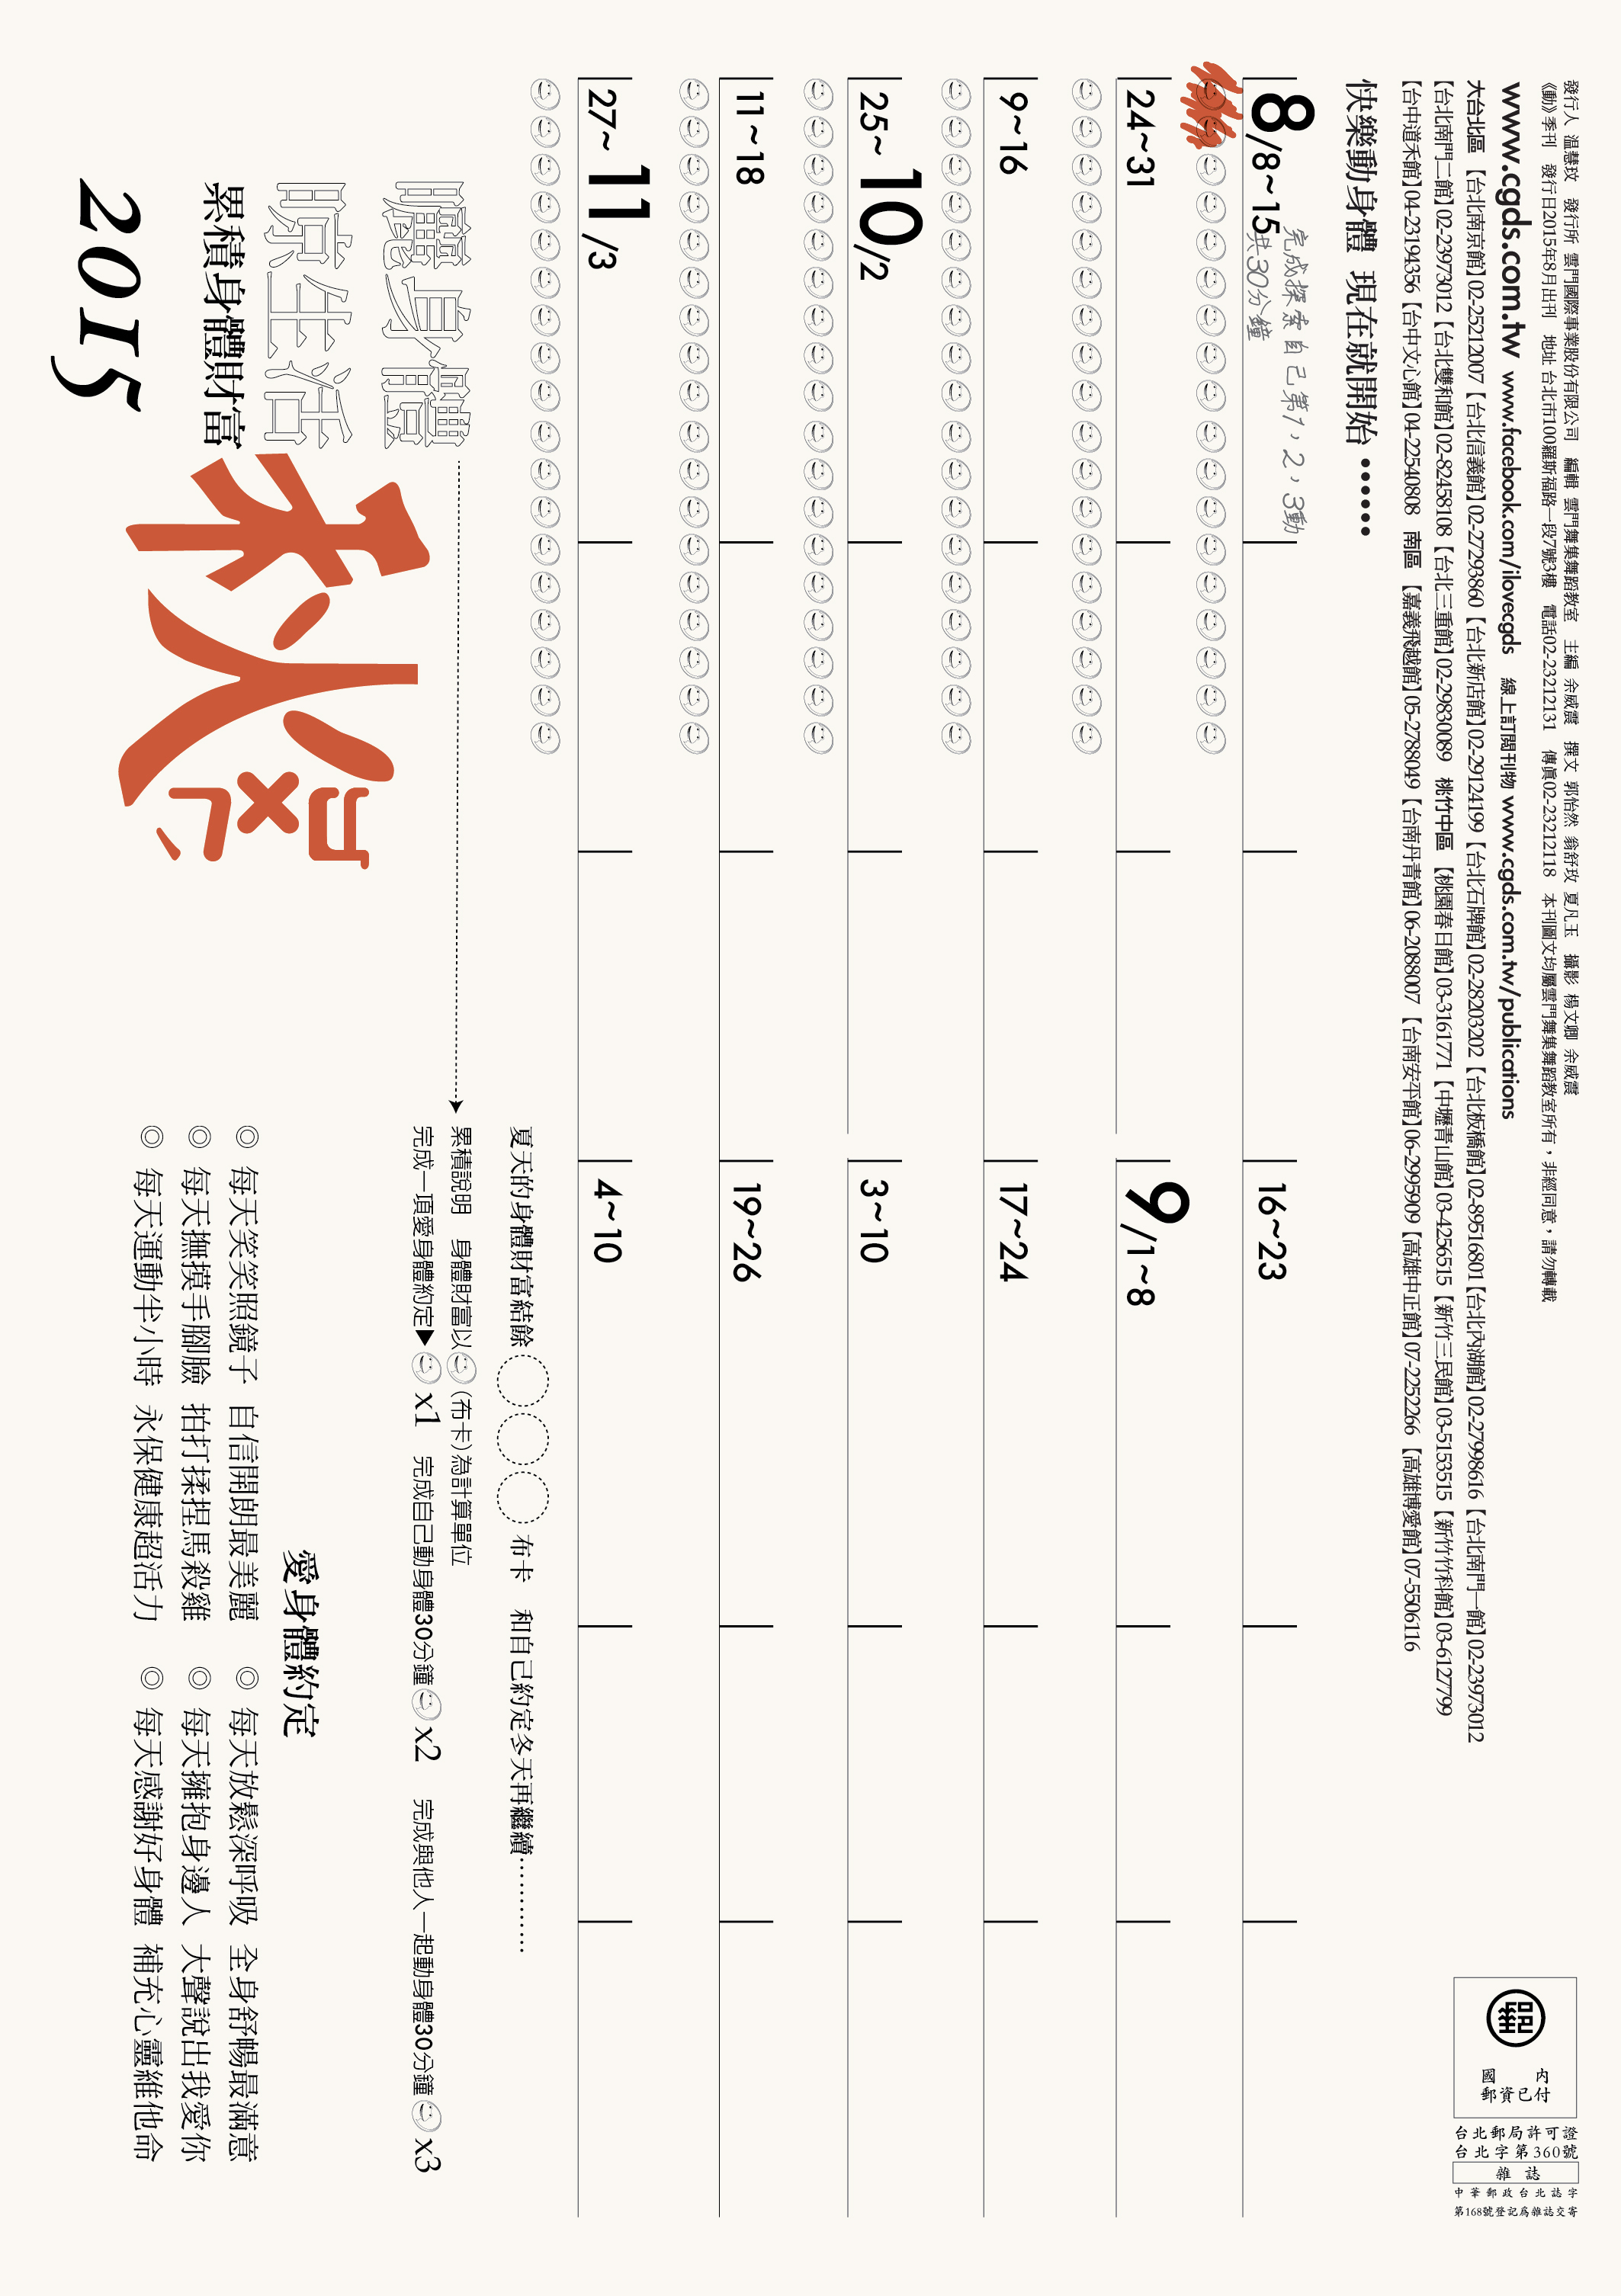 發行人 溫慧玟　發行所 雲門國際事業股份有限公司　編輯 雲門舞集舞蹈教室　主編 余威震　撰文 郭怡然 翁舒玫 夏凡玉　攝影 楊文卿 余威震
《動》季刊　發行日2015年8月出刊　地址 台北市100羅斯福路一段7號3樓　電話02-23212131　傳真02-23212118　本刊圖文均屬雲門舞集舞蹈教室所有，非經同意，請勿轉載
www.cgds.com.tw www.facebook.com/ilovecgds 線上訂閱刊物 www.cgds.com.tw/publications
大台北區 【台北南京館】02-25212007【台北信義館】02-27293860【台北新店館】02-29124199【台北石牌館】02-28203202【台北板橋館】02-89516801【台北內湖館】02-27998616【台北南門一館】02-23973012
【台北南門二館】02-23973012【台北雙和館】02-82458108【台北三重館】02-29830089 桃竹中區 【桃園春日館】03-3161771【中壢青山館】03-4256515【新竹三民館】03-5153515【新竹竹科館】03-6127799
【台中道禾館】04-23194356【台中文心館】04-22540808 南區 【嘉義飛越館】05-2788049【台南丹青館】06-2088007【台南安平館】06-2995909【高雄中正館】07-2252266【高雄博愛館】07-5506116
國 內
郵資已付
台北郵局許可證
台北字第360號
雜 誌
中華郵政台北誌字
第168號登記為雜誌交寄
快樂動身體 現在就開始 •••••••
8/8~15
完成探索自己第1，2，3動
共30分鐘
16~23
24~31
9/1~8
9~16
17~24
25~10/2
3~10
11~18
19~26
27~11/3
4~10
夏天的身體財富結餘 布卡 和自己約定冬天再繼續⋯⋯⋯⋯
曬身體
晾生活
累積身體財富
2015
秋
累積說明 身體財富以(布卡)為計算單位
完成一項愛身體約定▶ x1 完成自己動身體30分鐘 x2 完成與他人一起動身體30分鐘 x3
愛身體約定
◎ 每天笑笑照鏡子 自信開朗最美麗 ◎ 每天放鬆深呼吸 全身舒暢最滿意
◎ 每天撫摸手腳臉 拍打揉捏馬殺雞 ◎ 每天擁抱身邊人 大聲說出我愛你
◎ 每天運動半小時 永保健康超活力 ◎ 每天感謝好身體 補充心靈維他命